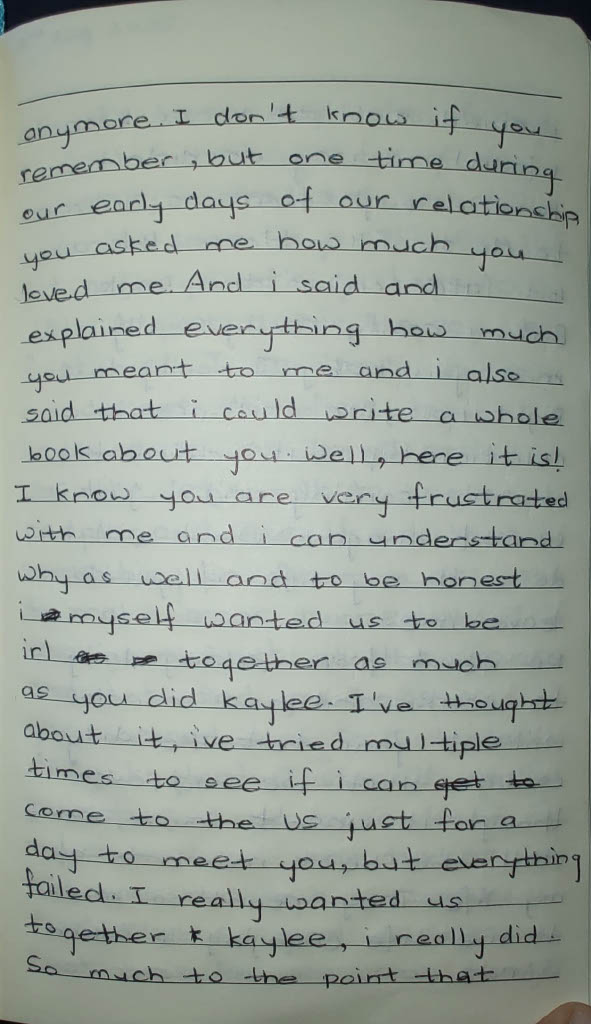 anymore. I don't know if you
remember, but one time during
our early days of our relationship
you asked me how much you
loved me. And i said and
explained everything how much
you meant to me and i also
said that i could write a whole
book about you. Well, here it is!
I know you are very frustrated
with me and i can understand
why as well and to be honest
i myself wanted us to be
irl together as much
as you did kaylee. I've thought
about it, ive tried multiple
times to see if i can get to
come to the US just for a
day to meet you, but everything
failed. I really wanted us
together kaylee, i really did.
So much to the point that